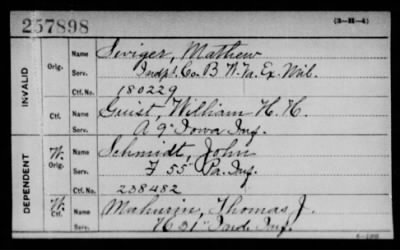 257898
(3-H-4)
Name Seviger, Mathew
Orig. Serv. Indpt. Co. B W. Va. Ex. Mil.
Ctf. No. 180229
INVALID
Name Guist, William H. H.
Ctf. Serv. A 9" Iowa Inf.
Name Schmidt, John
W. Orig. Serv. F 55" Pa. Inf.
Ctf. No. 238482
DEPENDENT
Name Mahurin, Thomas J.
W. Ctf. Serv. H 31" Ind. Inf.